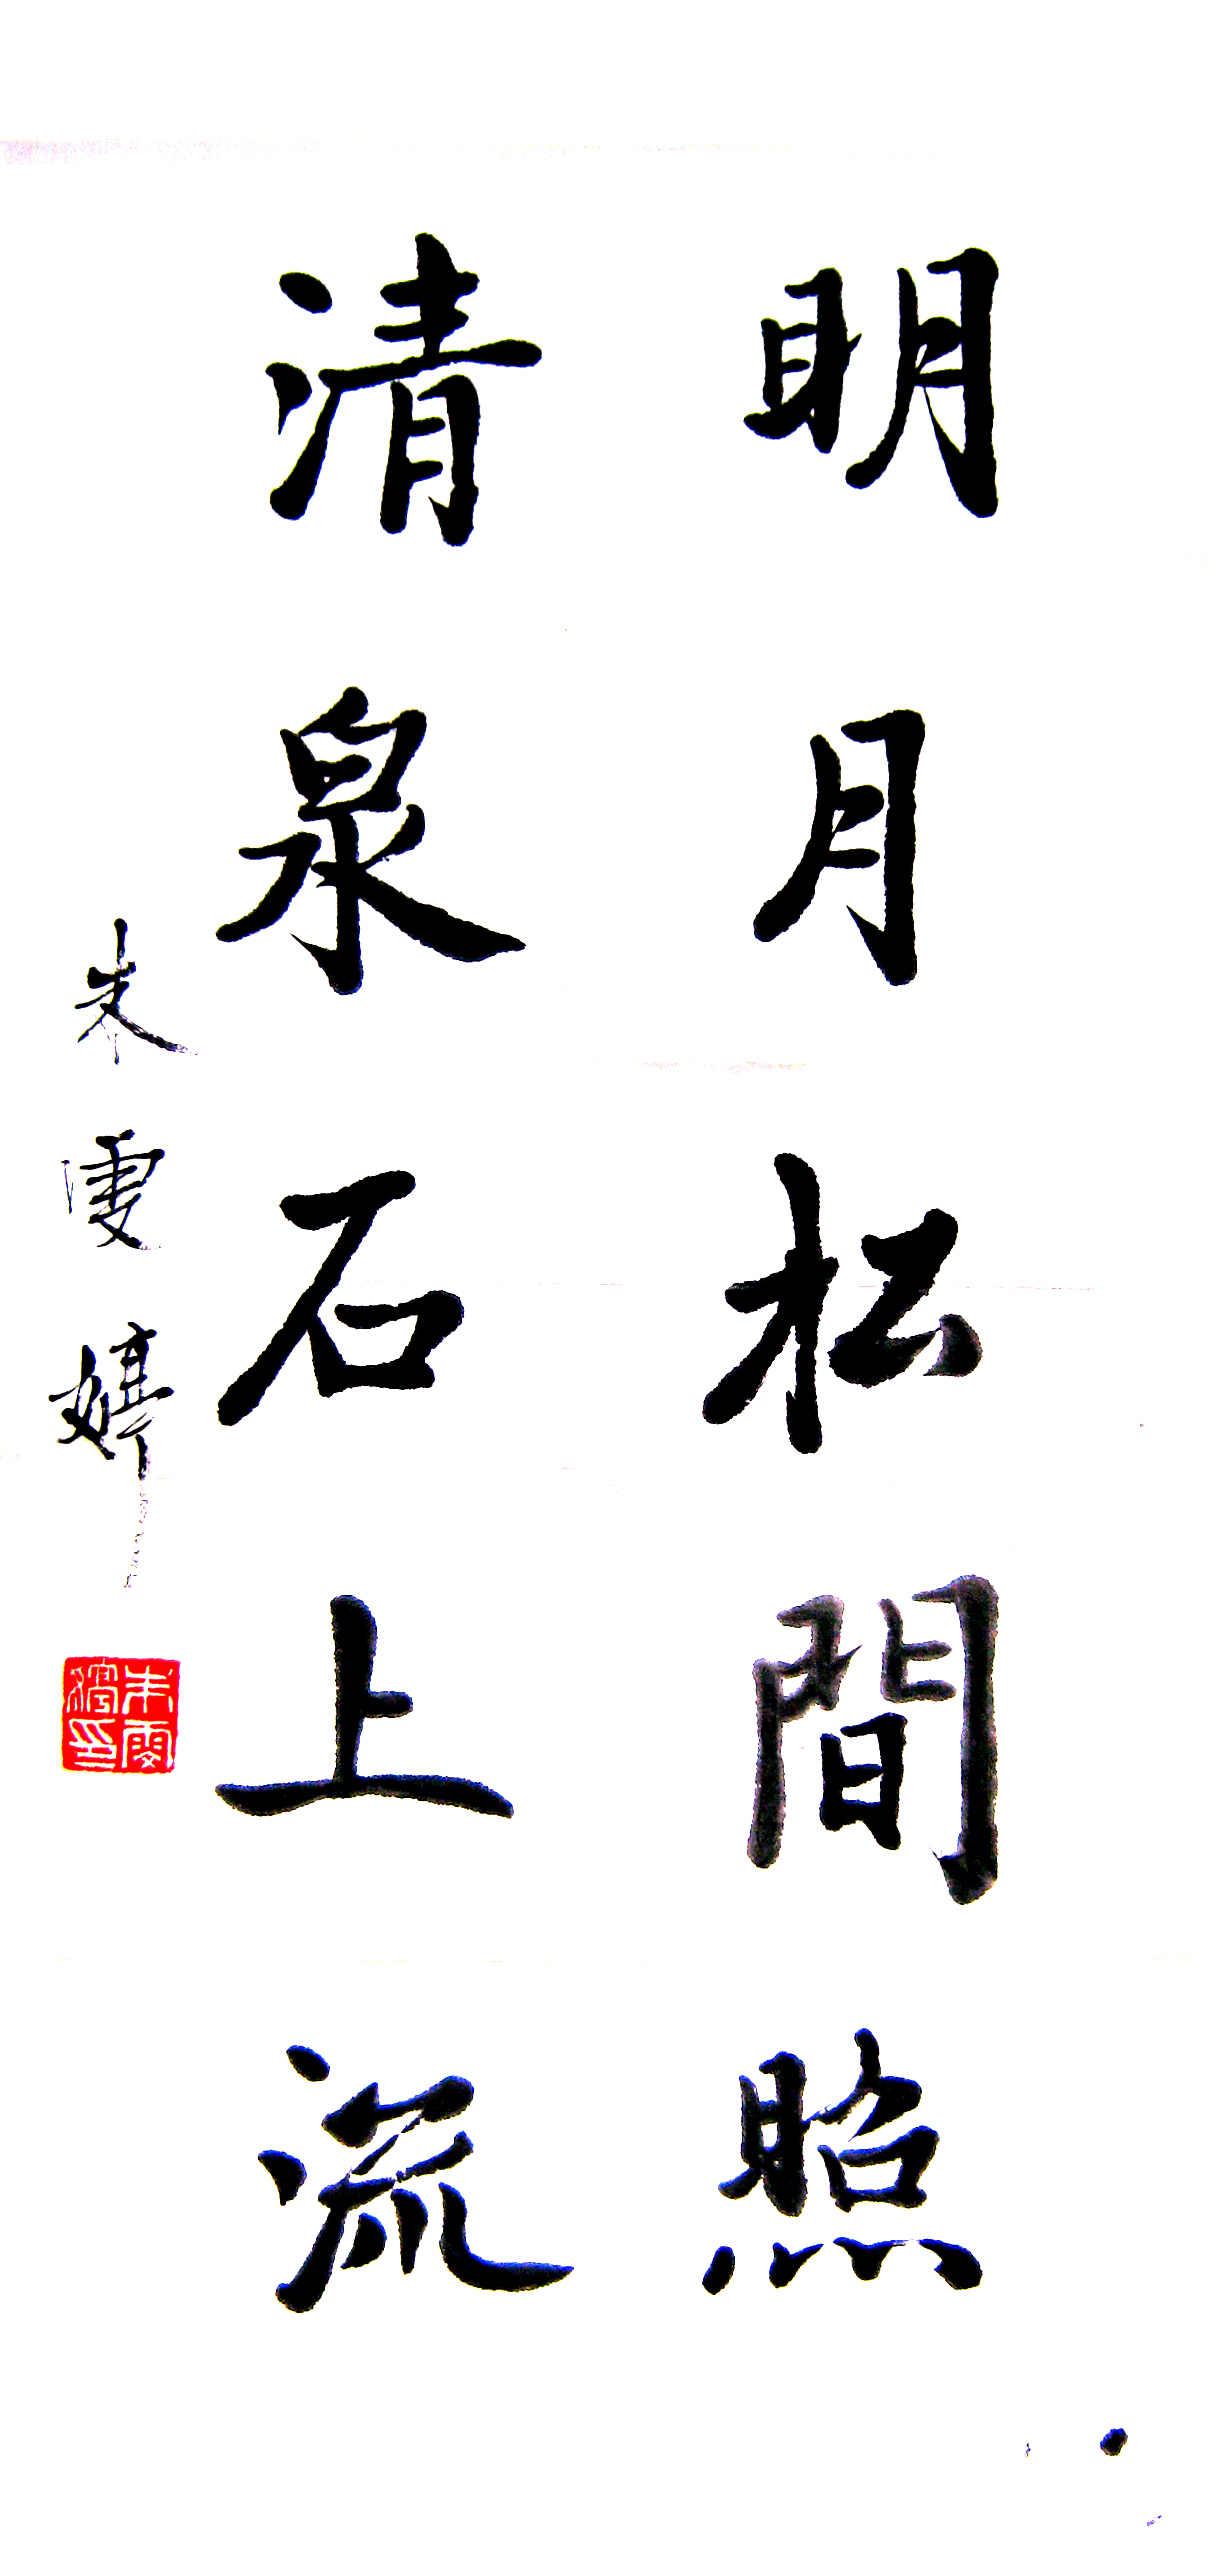 明月松間照
清泉石上流
朱雯婷